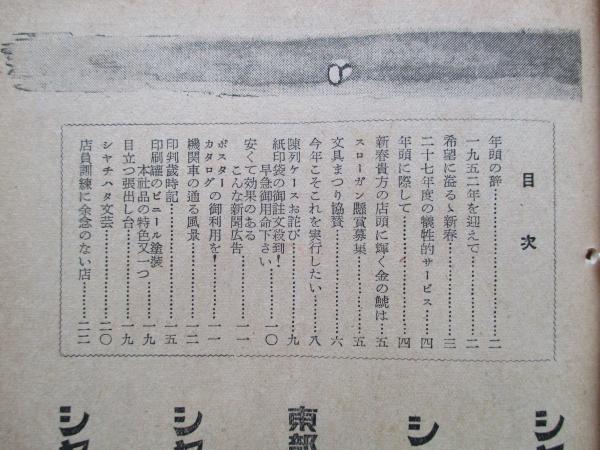 目次
年頭の辞……………二
一九五二年を迎えて……………二
希望に溢るゝ新春……………三
二十七年度の犠牲的サービス……………四
年頭に際して……………四
新春貴方の店頭に輝く金の鯱は……………五
スローガン懸賞募集……………五
文具まつり協賛……………六
今年こそこれを実行したい……………八
陳列ケースお詫び……………九
紙印袋の御註文殺到!
早急御用命下さい……………一〇
安くて効果のある
こんな新聞広告……………一一
ポスターの御利用を!
カタログ……………一一
機関車の通る風景……………一二
印判歳時記……………一五
印刷罐のビニール塗装
本社品の特色又一つ……………一九
目立つ張出し台……………一九
シヤチハタ文芸……………二〇
店員訓練に余念のない店……………二二
シ
シ
東部
シヤ
シヤ